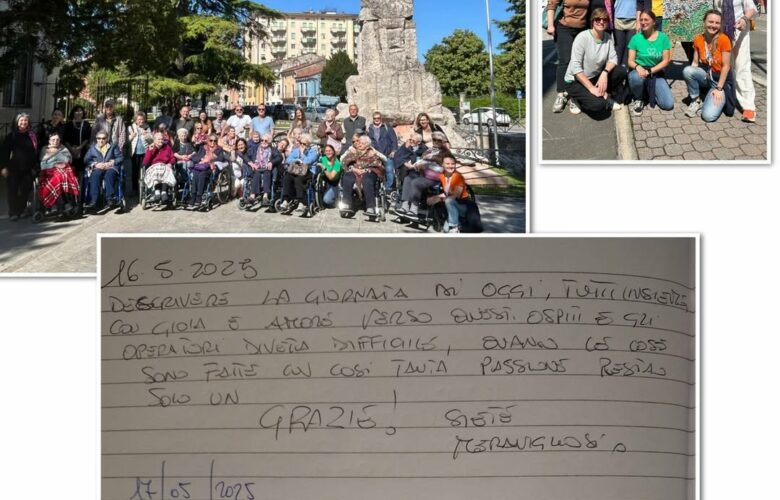 16.5.2025
DESCRIVERE LA GIORNATA DI OGGI, TUTTI INSIEME
CON GIOIA E AMORE VERSO QUESTI OSPITI E GLI
OPERATORI DIVETA DIFFICILE, QUANDO LE COSE
SONO FATTE CON COSI TANTA PASSIONE RESTA
SOLO UN
GRAZIE! SIETE
MERAVIGLIOSI.
17/05/2025